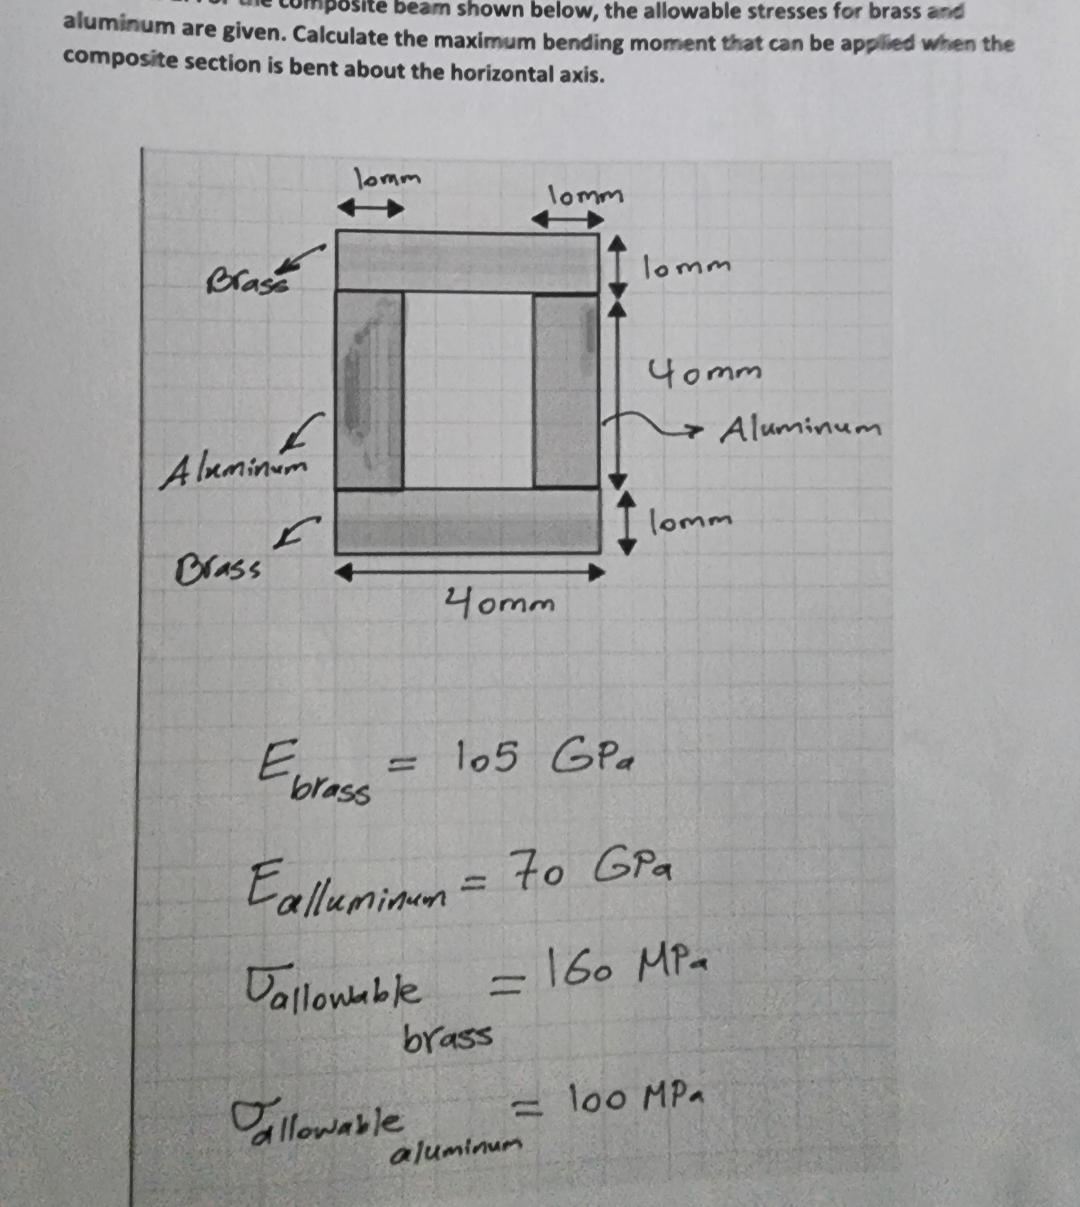 the composite beam shown below, the allowable stresses for brass and
aluminum are given. Calculate the maximum bending moment that can be applied when the
composite section is bent about the horizontal axis.
10mm
10mm
Brass
10mm
40mm
Aluminum
Aluminum
10mm
Brass
40mm
E brass = 105 GPa
E alluminum = 70 GPa
σ allowable brass = 160 MPa
σ allowable aluminum = 100 MPa